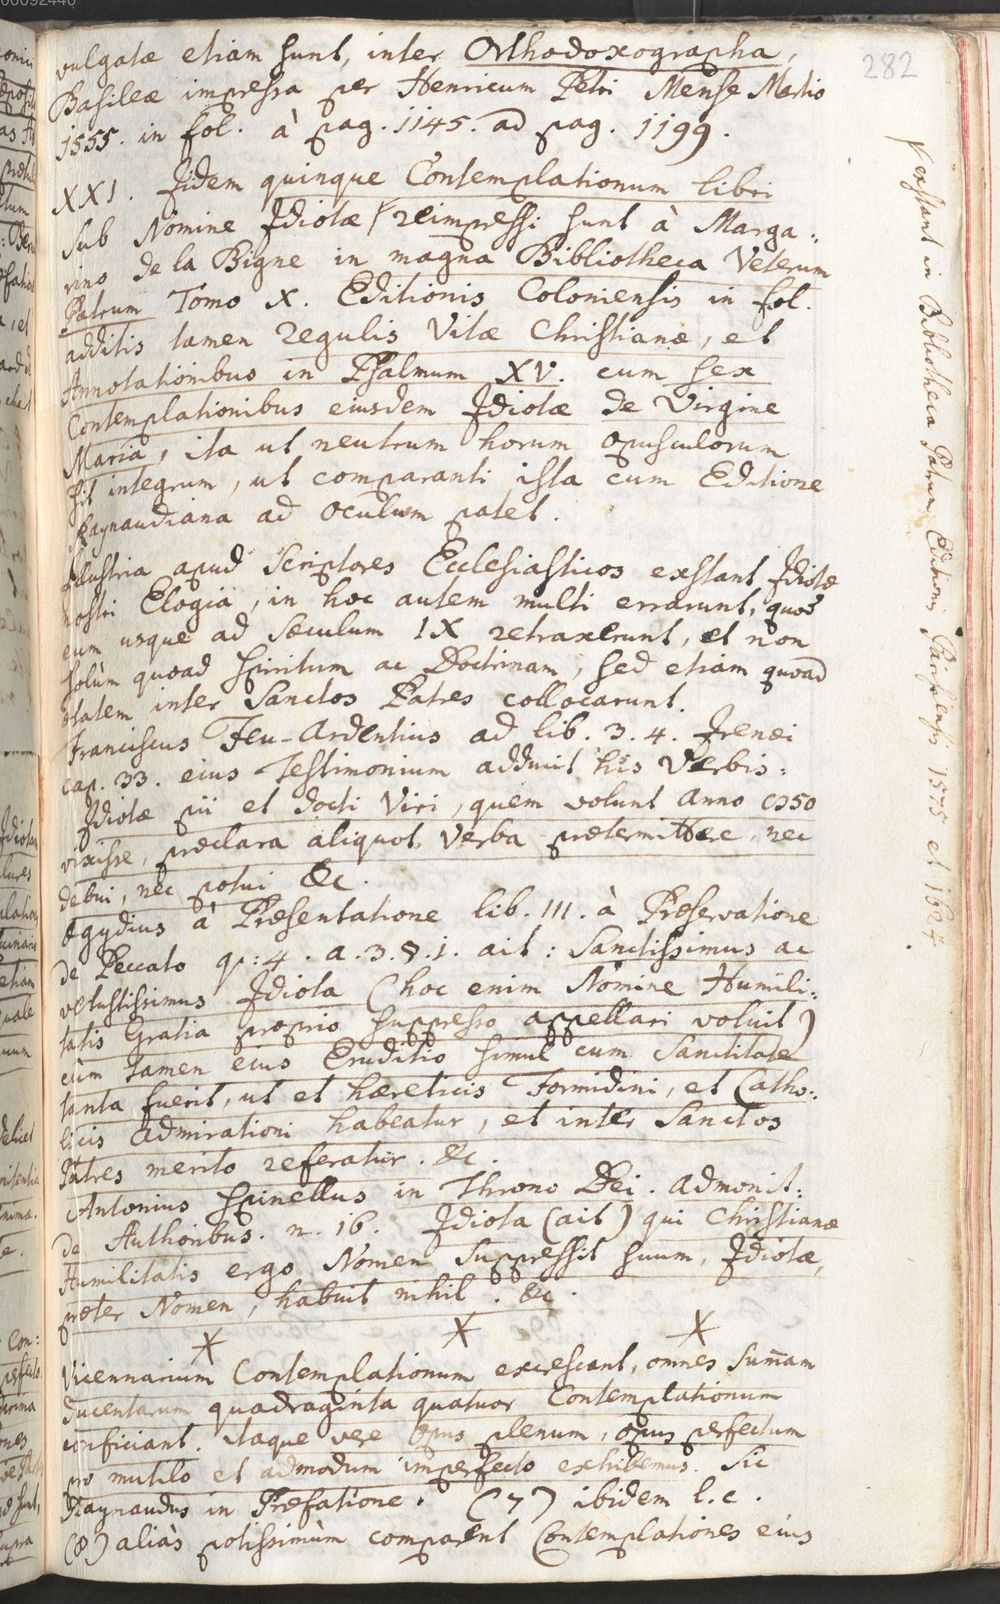 282
vulgatæ etiam sunt, inter Orthodoxographa,
Basileæ impressa per Henricum Petri Mense Martio
1555. in fol. à pag. 1145. ad pag. 1199.
XXI. Iidem quinque Contemplationum libri
sub Nomine Idiotæ / reimpressi sunt à Marga:
rino de la Bigne in magna Bibliotheca Veterum
Patrum Tomo X. Editionis Coloniensis in fol.
additis tamen Regulis Vitæ Christianæ, et
Annotationibus in Psalmum XV. cum sex
Contemplationibus eiusdem Idiotæ de Virgine
Maria, ita ut neutrum horum opusculorum
sit integrum, ut comparanti ista cum Editione
Raynaudiana ad oculum patet.
Illustria apud Scriptores Ecclesiasticos exstant Idiotæ
nostri Elogia, in hoc autem multi errarunt, quod
eum usque ad sæculum IX retraxerunt, et non
solùm quoad spiritum ac Doctrinam, sed etiam quoad
ætatem inter Sanctos Patres collocarunt.
Franciscus Feu-Ardentius ad lib. 3. 4. Irenæi
cap. 33. eius Testimonium adducit his Verbis:
Idiotæ pii et docti Viri, quem volunt Anno
vixisse, præclara aliquot Verba prætermittere, nec
debui, nec potui &c.
Ægydius à Præsentatione lib. III. à Præservatione
de Peccato q: 4. a. 3. §. 1. ait: Sanctissimus ac
vetustissimus Idiota (hoc enim Nomine Humili:
tatis Gratia proprio suppresso appellari voluit)
cùm tamen eius Eruditio simul cum Sanctitate
tanta fuerit, ut et hæreticis Formidini, et Catho:
licis admirationi habeatur, et inter Sanctos
Patres merito referatur. &c.
Antonius Spinellus in Throno Dei. Admonit:
de Authoribus. n. 16. Idiota (ait) qui Christianæ
Humilitatis ergo Nomen suppressit suum, Idiotæ,
præter Nomen, habuit nihil. &c.
* * *
Vicennarium Contemplationum excrescant, omnes Summam
ducentarum quadraginta quatuor Contemplationum
conficiant. itaque vere opus plenum, opus perfectum
pro mutilo et admodum imperfecto exhibemus. Sic
Raynaudus in Præfatione. (7) ibidem l. c.
(8) aliàs potissimùm comparent Contemplationes eius
/ exstant in Bibliotheca Patrum Editionis Parisiensis 1575 et 1624